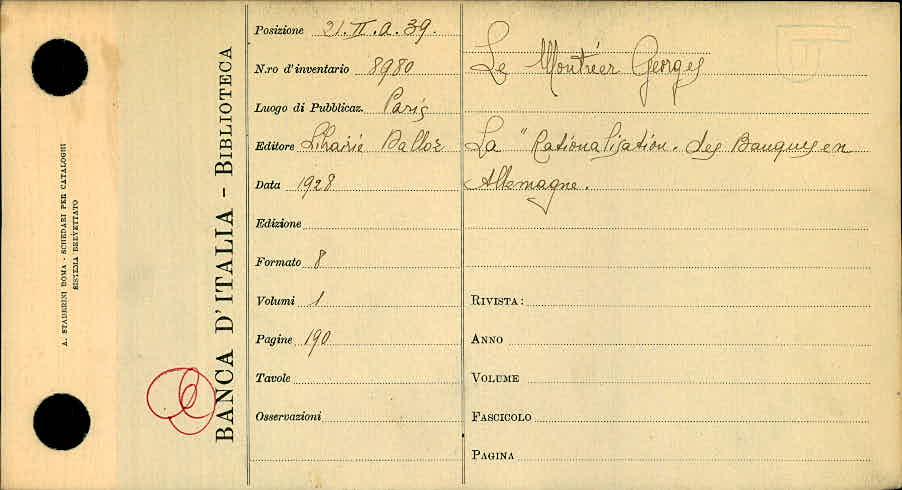 A. STADERINI ROMA - SCHEDARI PER CATALOGHI
SISTEMA BREVETTATO
BANCA D'ITALIA - BIBLIOTECA
Posizione 21.II.a.39.
N.ro d'inventario 8980
Luogo di Pubblicaz. Paris
Editore Librairie Dalloz
Data 1928
Edizione
Formato 8
Volumi 1
Pagine 190
Tavole
Osservazioni
Le Georges
La "Rationalisation. des Banques en
Allemagne.
RIVISTA:
ANNO
VOLUME
FASCICOLO
PAGINA